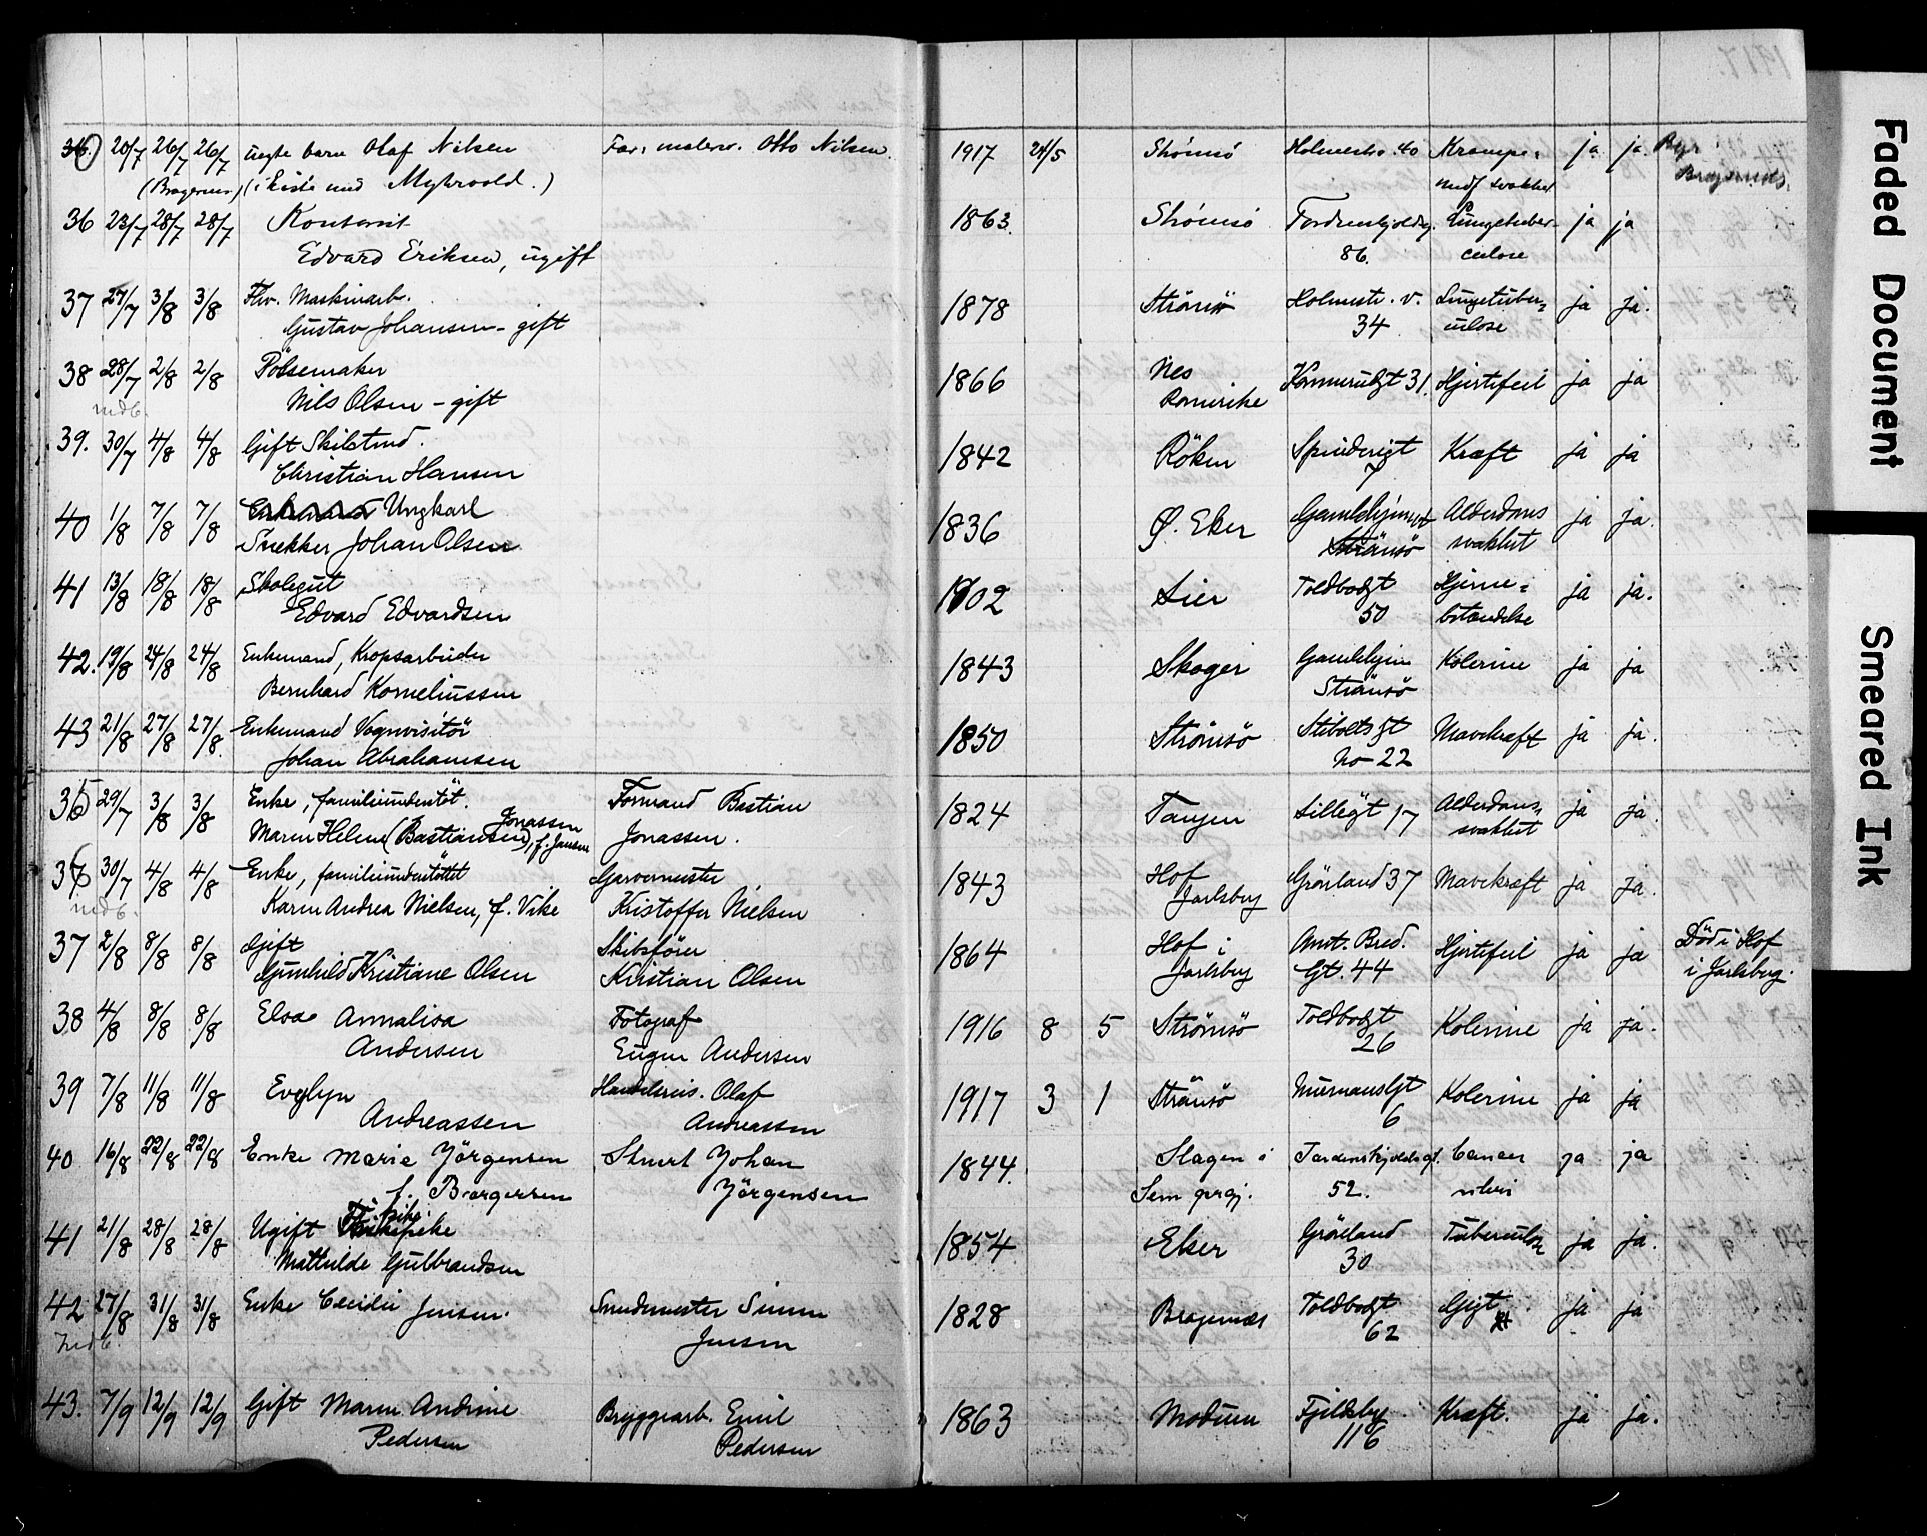 1917
36. 20/7 26/7 26/7 uegte barn Olaf Nilsen Far: malersv. Otto Nilsen. 1917 21/5 Strömsö Holmestr. 40 Krampe: ja ja. Byr i
(Bragernes) (i kiste med Myhrvold.) medf svakhet Bragernes
36 23/7 28/7 28/7 Kontorist 1863. Strömsö Tordenskjoldsg. Lungetuber- ja ja
Edvard Eriksen, ugift 86. culose
37 27/7 3/8 3/8 Fhv. Maskinarb. 1878 Strömsö Holmestr. v. Lungetuber= ja ja.
Gustav Johansen - gift 34 culose
38 28/7 2/8 2/8 Pölsemaker 1866 Nes Konnerudgt 31. Hjertefeil ja ja
medb. Nils Olsen - gift Romerike
39. 30/7 4/8 4/8 Gift Skibstmd. 1842 Röken Spinderigt Kræft ja ja
Christian Hansen 7
40 1/8 7/8 7/8 Ungkarl 1836 Ø. Eker Gamlehjemmet Alderdoms ja ja.
Snekker Johan Olsen Strömsö svakhet
41 13/8 18/8 18/8 Skolegut 1902 Lier Toldbodgt Hjerne= ja ja.
Edvard Edvardsen 50 betændelse
42. 19/8 24/8 24/8 Enkemand, Kropsarbeider 1843 Skoger Gamlehjem Kolerine ja ja
Bernhard Korneliussen Strömsö
43 21/8 27/8 27/8. Enkemand Vognvisitör 1850 Strömsö Stiboltsgt Mavekræft ja ja.
Johan Abrahamsen No 22
35 29/7 3/8 3/8 Enke, familieunderstöt. Formand Bastian 1824 Tangen Lillegt 17 Alderdoms= ja ja.
Maren Helene (Bastiansen) Jonassen, f. Jansen Jonassen. svakhet
36 30/7 4/8 4/8 Enke, familieunderstöttet Garvermester 1843 Hof Grönland 37 Mavekræft ja ja.
medb. Karen Andrea Nielsen, f. Vike Kristoffer Nielsen Jarlsberg
37 2/8 8/8 8/8 Gift Skibsförer 1864 Hof i Amt. Bred. Hjertefeil ja ja Död i Hof
Gunhild Kristiane Olsen Kristian Olsen Jarlsberg Gt. 44 i Jarlsberg.
38 4/8 8/8 8/8 Elsa Annalisa Fotograf 1916 8 5 Strömsö Toldbodgt Kolerine ja ja.
Andersen Eugen Andersen 26
39 7/8 11/8 11/8 Evelyn Handelsreis. Olaf 1917 3 1 Strömsö Murmansgt Kolerine ja ja
Andreassen Andreassen 6
40 16/8 22/8 22/8 Enke Marie Jörgensen Stuert Johan 1844. Slagen i Tordenskjoldsgt. Cancer ja ja
f. Borgersen Jörgensen Sem prgj. 52. uteri
41 21/8 28/8 28/8 Ugift 1854 Eker Grönland Tuberculose ja ja.
Mathilde Gulbrandsen 30
42 27/8 31/8 31/8 Enke Cecilie Jensen. Smedmester Simen 1828 Bragernæs Toldbodgt Gigt ja ja
medb. Jensen 62
43. 7/9 12/9 12/9 Gift Maren Andrine Bryggearb. Emil 1863 Modum Fjeldsby Kræft. ja ja.
Pedersen Pedersen 116
Faded Document
Smeared Ink